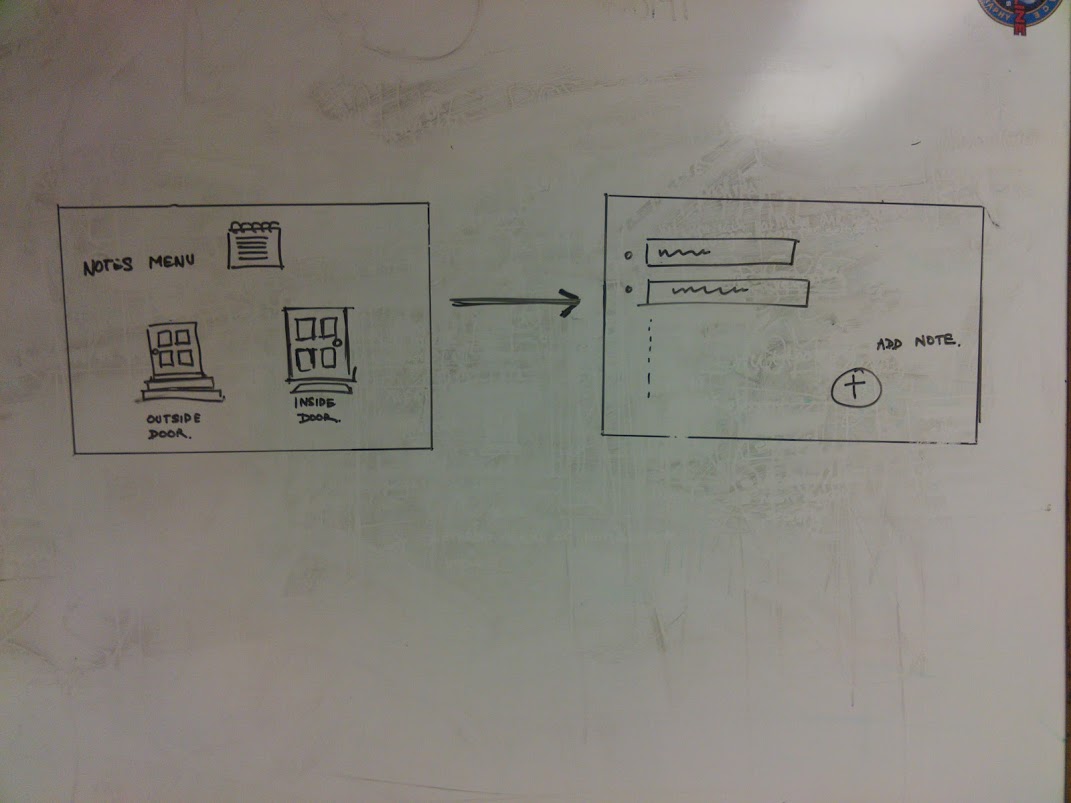 NOTES MENU
OUTSIDE
DOOR.
INSIDE
DOOR.
ADD NOTE.